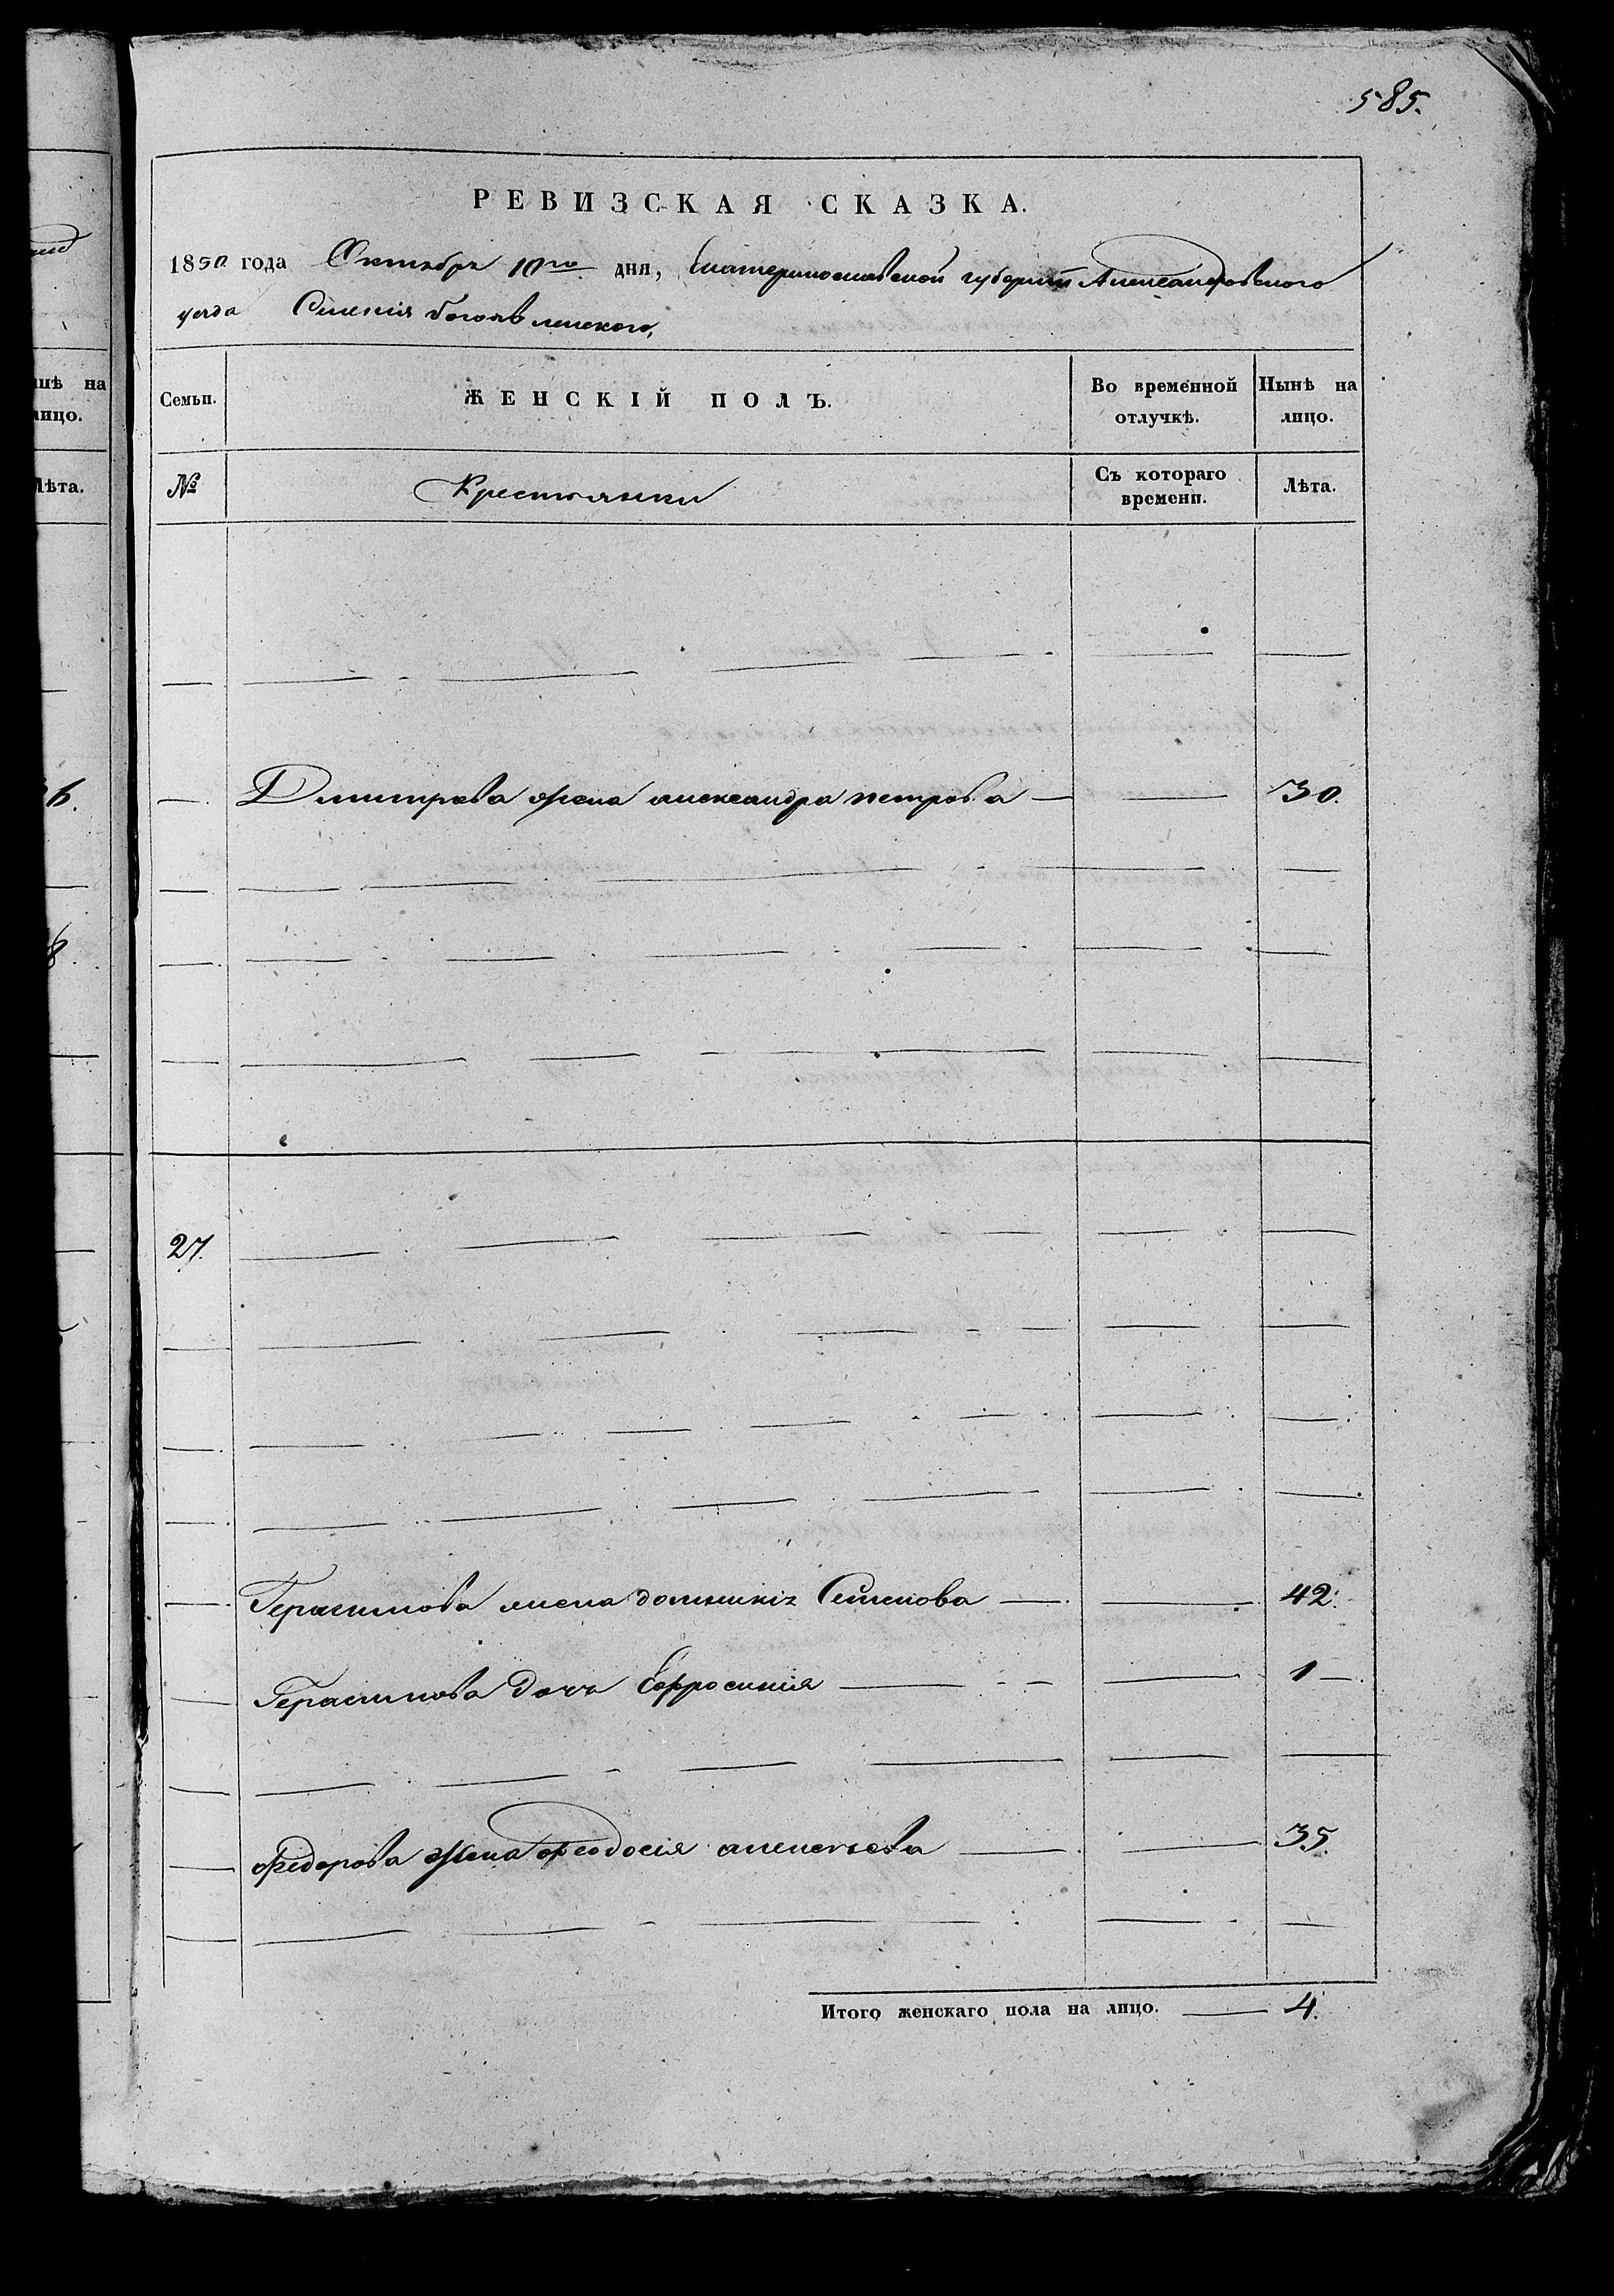 585.
РЕВИЗСКАЯ СКАЗКА.
1850 года Октября 10го дня, Екатеринославской губернии Александровского
уезда Селенія богоявленского,
Семьи. ЖЕНСКІЙ ПОЛЪ. Во временной отлучкѣ. Нынѣ на лицо.
№ Крестьянки Съ котораго времени. Лѣта.
Дмитрева жена александра петрова — — 30.
27.
Герасимова жена Семенова — — 42.
Герасимова дочь Ефросинія — — 1 —
Федорова жена феодосія алексеева — — 35.
Итого женскаго пола на лицо. — 4.
на
лицо.
Лѣта.
6.
8.